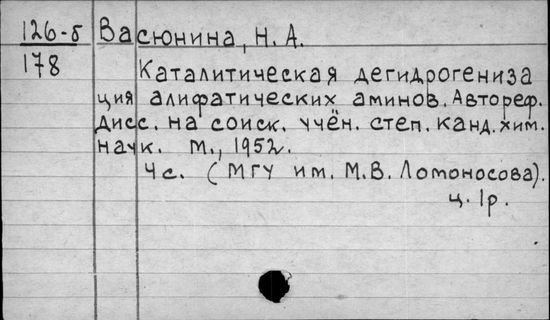 126-б Васюнина, Н. А.
178
Каталитическая дегидрогениза
ция алифатических аминов. Автореф.
Дисс. на соиск. учён. степ. канд. хим.
наук. М., 1952.
4 с. (МГУ им. М.В. Ломоносова).
ц. 1р.